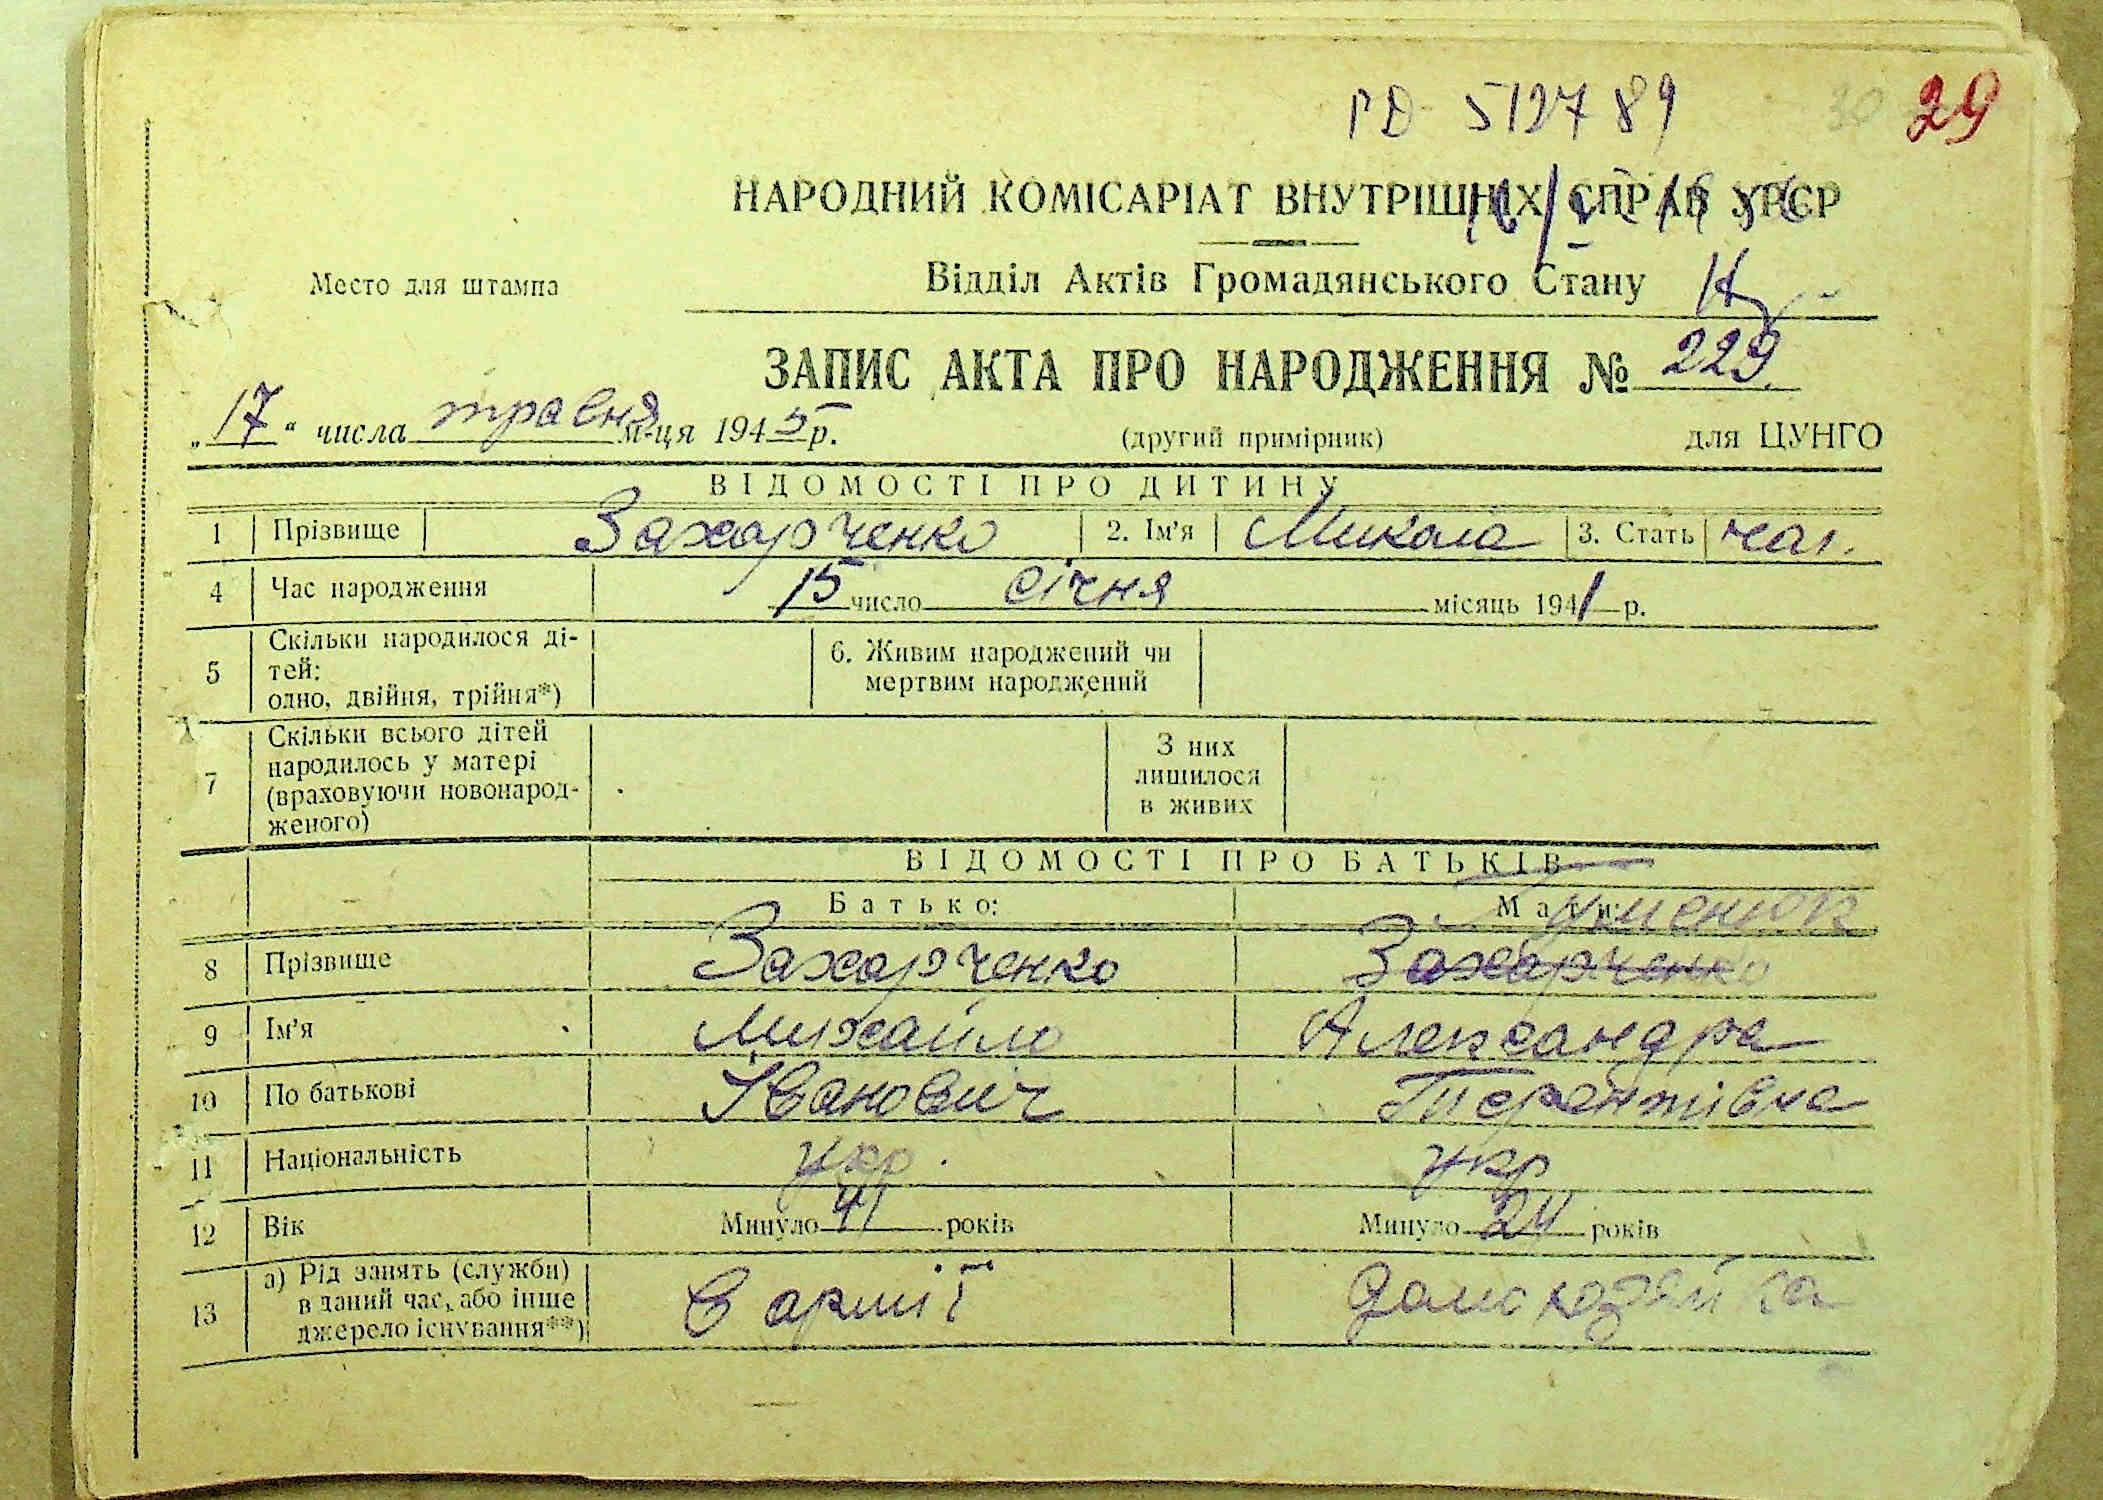 ГД 512789 30 29
НАРОДНИЙ КОМІСАРІАТ ВНУТРІШНІХ СПРАВ УРСР
Відділ Актів Громадянського Стану
Место для штампа
ЗАПИС АКТА ПРО НАРОДЖЕННЯ № 229.
„17“ числа травня м-ця 1945 р. (другий примірник) для ЦУНГО
ВІДОМОСТІ ПРО ДИТИНУ
1 Прізвище Захарченко 2. Ім'я Микола 3. Стать чол.
4 Час народження 15 число січня місяць 1941 р.
5 Скільки народилося ді-
тей:
одно, двійня, трійня*)
6. Живим народжений чи
мертвим народжений
7 Скільки всього дітей
народилось у матері
(враховуючи новонарод-
женого)
З них
лишилося
в живих
ВІДОМОСТІ ПРО БАТЬКІВ
Батько: Мати:
Гуменюк
8 Прізвище Захарченко Захарченко
9 Ім'я Михайло Александра
10 По батькові Іванович Терентівна
11 Національність укр. укр
12 Вік Минуло 41 років Минуло 24 років
13 а) Рід занять (служби)
в даний час, або інше
джерело існування**)
В армії домохозяйка